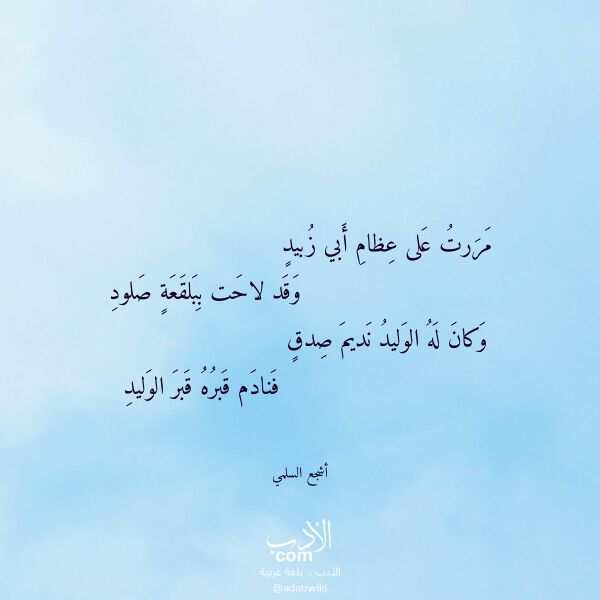 مَرَرتُ عَلى عِظامِ أَبي زُبيدٍ
وَقَد لاحَت بِبَلقَعَةٍ صَلودِ
وَكانَ لَهُ الوَليدُ نَديمَ صِدقٍ
فَنادَم قَبرُهُ قَبرَ الوَليدِ
أشجع السلمي
الأدب
com
الأدب .. بلغة عربية
@adabwiki